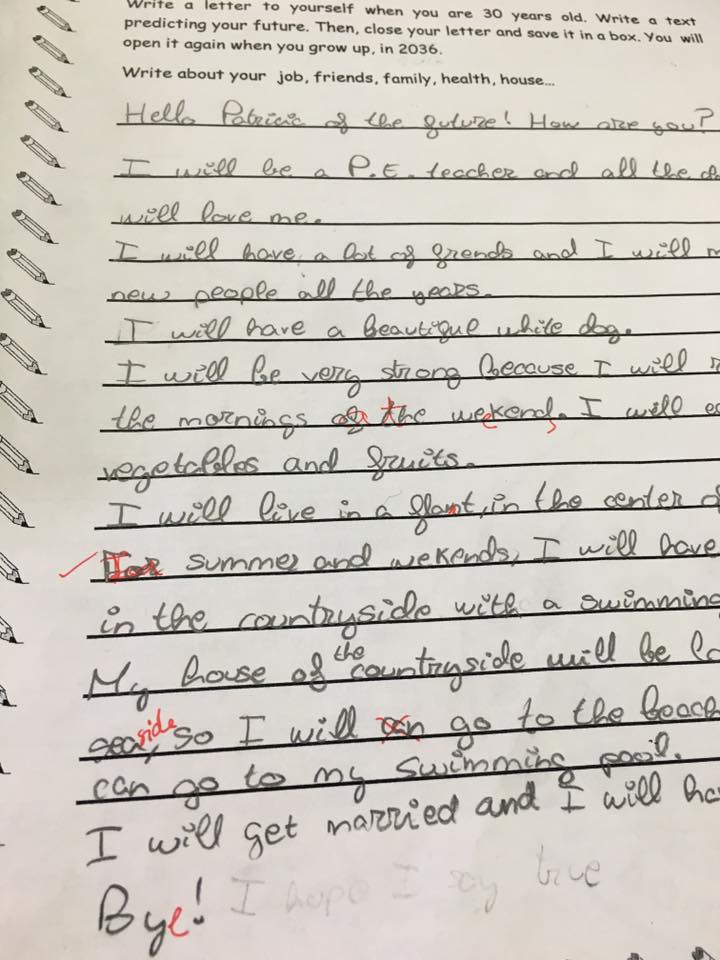 Write a letter to yourself when you are 30 years old. Write a text
predicting your future. Then, close your letter and save it in a box. You will
open it again when you grow up, in 2036.
Write about your job, friends, family, health, house...
Hello Patricia of the future! How are you?
I will be a P.E. teacher and all the
will love me.
I will have a lot of frends and I will
new people all the years.
I will have a beautiful white dog.
I will be very strong because I will
the mornings of the weekends. I will
vegetables and fruits.
I will live in a flat, in the center
In summer and wekends, I will have
in the countryside with a swimming
My house of the countryside will be
seaside, so I will go to the beach
can go to my swimming pool.
I will get married and I will
Bye! I hope I say true